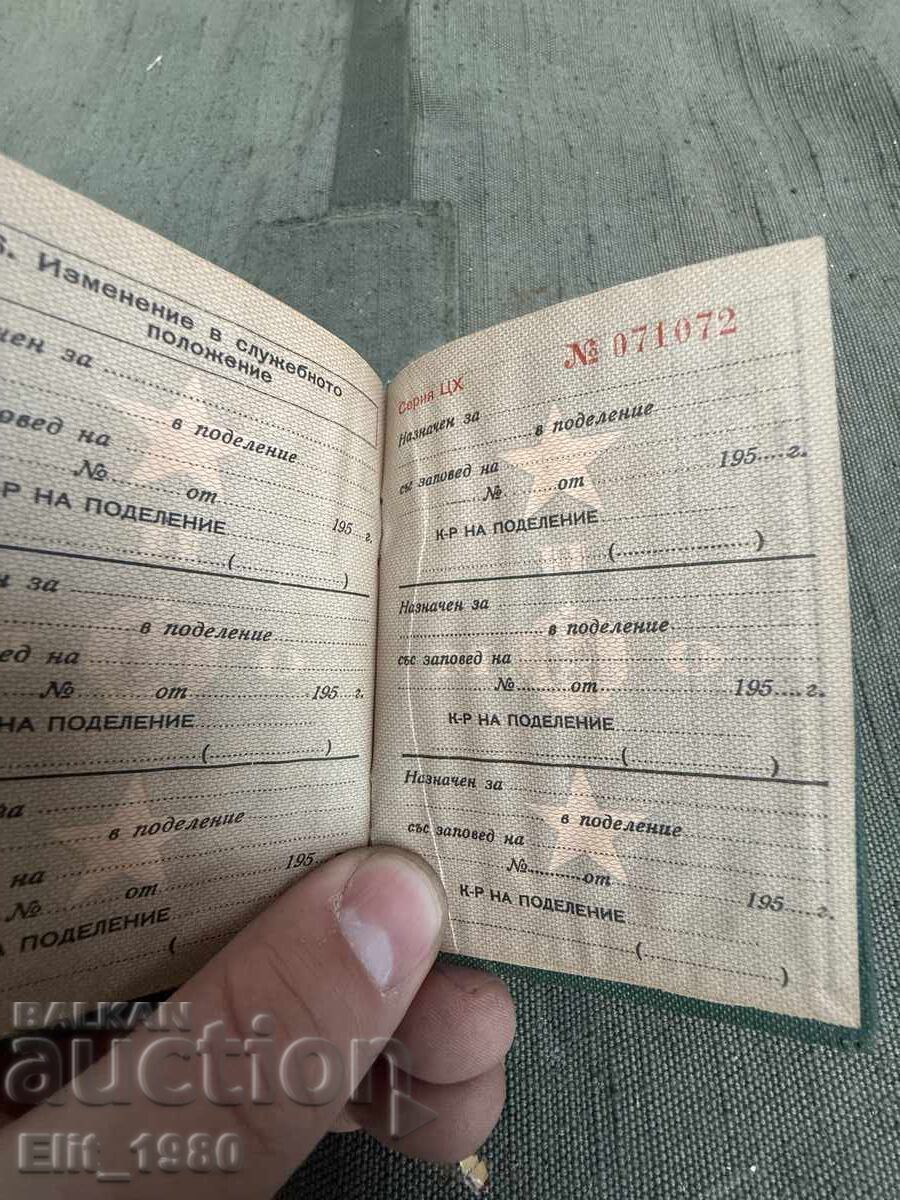 6. Изменение в служебното
положение
чен за
в поделение
овед на
№ от 195 г.
К-Р НА ПОДЕЛЕНИЕ
( )
н за
в поделение
вед на
№ от 195 г.
НА ПОДЕЛЕНИЕ
( )
за
в поделение
на
№ от 195
А ПОДЕЛЕНИЕ
(
Серия ЦХ № 071072
Назначен за
в поделение
със заповед на
№ от 195 г.
К-Р НА ПОДЕЛЕНИЕ
( )
Назначен за
в поделение
със заповед на
№ от 195 г.
К-Р НА ПОДЕЛЕНИЕ
( )
Назначен за
в поделение
със заповед на
№ от 195 г.
К-Р НА ПОДЕЛЕНИЕ
( )
BALKAN
auction
Elit_1980